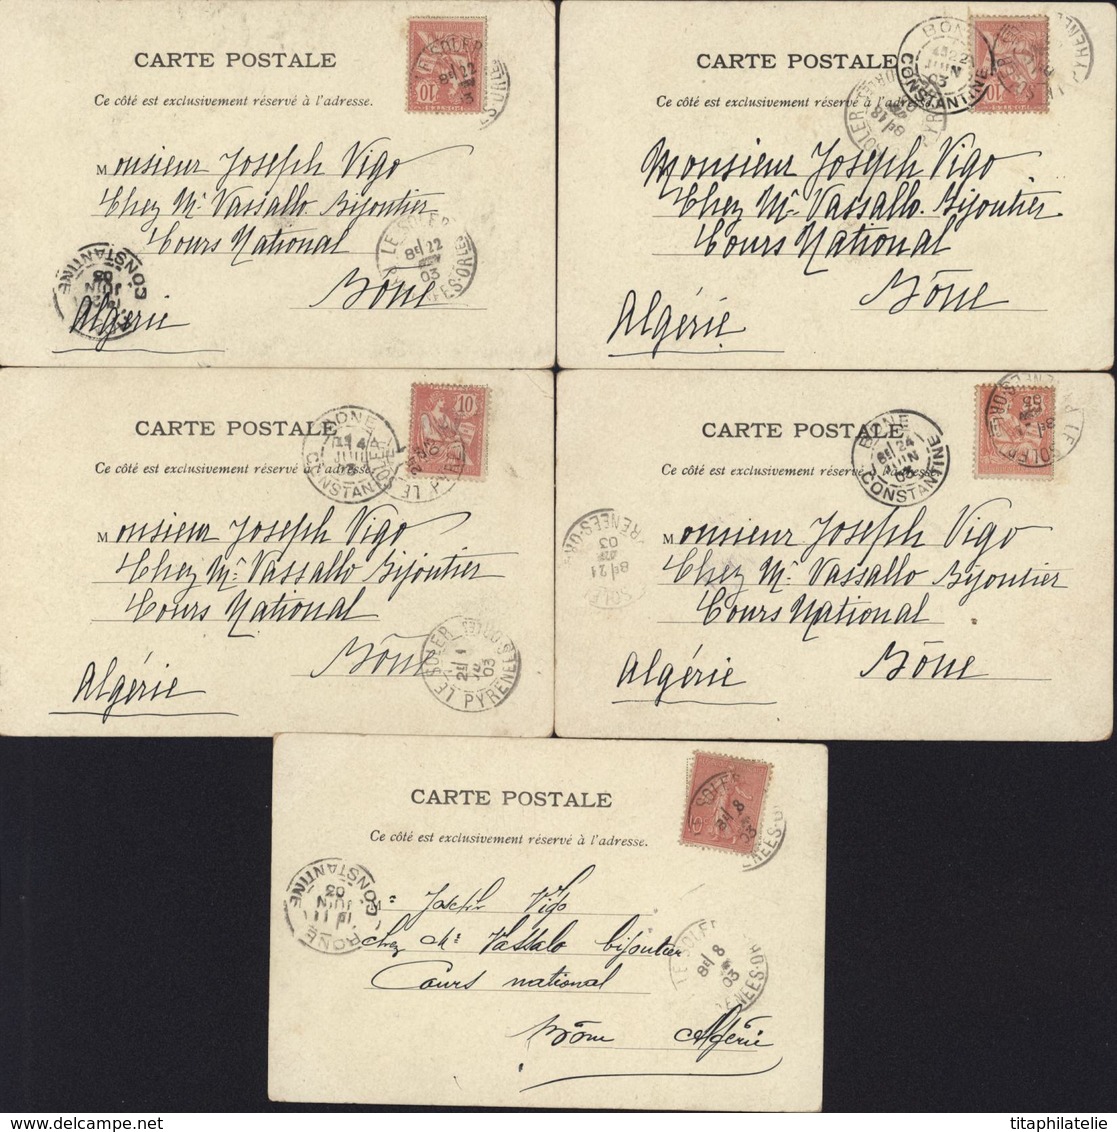 CARTE POSTALE
Ce côté est exclusivement réservé à l'adresse.
10
Monsieur Joseph Vigo
Chez Mr Vassallo Bijoutier
Cours National
Bône
Algérie
LE SOLER
8E 22
03
CONSTANTINE
JUIN
03
CARTE POSTALE
Ce côté est exclusivement réservé à l'adresse.
10
BONE
JUIN
03
CONSTANTINE
Monsieur Joseph Vigo
Chez Mr Vassallo Bijoutier
Cours National
Bône
Algérie
CARTE POSTALE
Ce côté est exclusivement réservé à l'adresse.
10
BONE
CONSTANTINE
Monsieur Joseph Vigo
Chez Mr Vassallo Bijoutier
Cours National
Bône
Algérie
LE SOLER
03
PYRENEES-ORles
CARTE POSTALE
Ce côté est exclusivement réservé à l'adresse.
BONE
8E 24
JUIN
03
CONSTANTINE
Monsieur Joseph Vigo
Chez Mr Vassallo Bijoutier
Cours National
Bône
Algérie
8E 21
03
CARTE POSTALE
Ce côté est exclusivement réservé à l'adresse.
BONE
JUIN
03
CONSTANTINE
Mr Joseph Vigo
chez Mr Vassalo bijoutier
Cours national
Bône Algérie
LE SOLER
8E 8
03
titaphilatelie